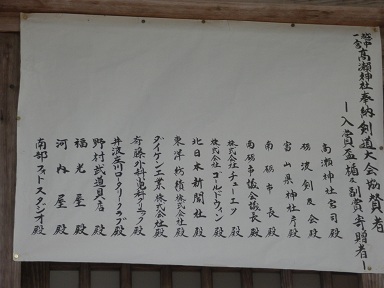 越中一宮高瀬神社奉納剣道大会協賛者
ー入賞盃楯及副賞寄贈者ー
高瀬神社宮司殿
砺波剣友会殿
富山県神社庁殿
南砺市長殿
南砺市議会議長殿
株式会社チューエツ殿
株式会社ゴールドウィン殿
北日本新聞社殿
東洋紡績株式会社殿
ダイケン工業株式会社殿
斉藤外科クリニック殿
井波庄川ロータリークラブ殿
野村武道具店殿
福光屋殿
河内屋殿
南部フォトスタジオ殿